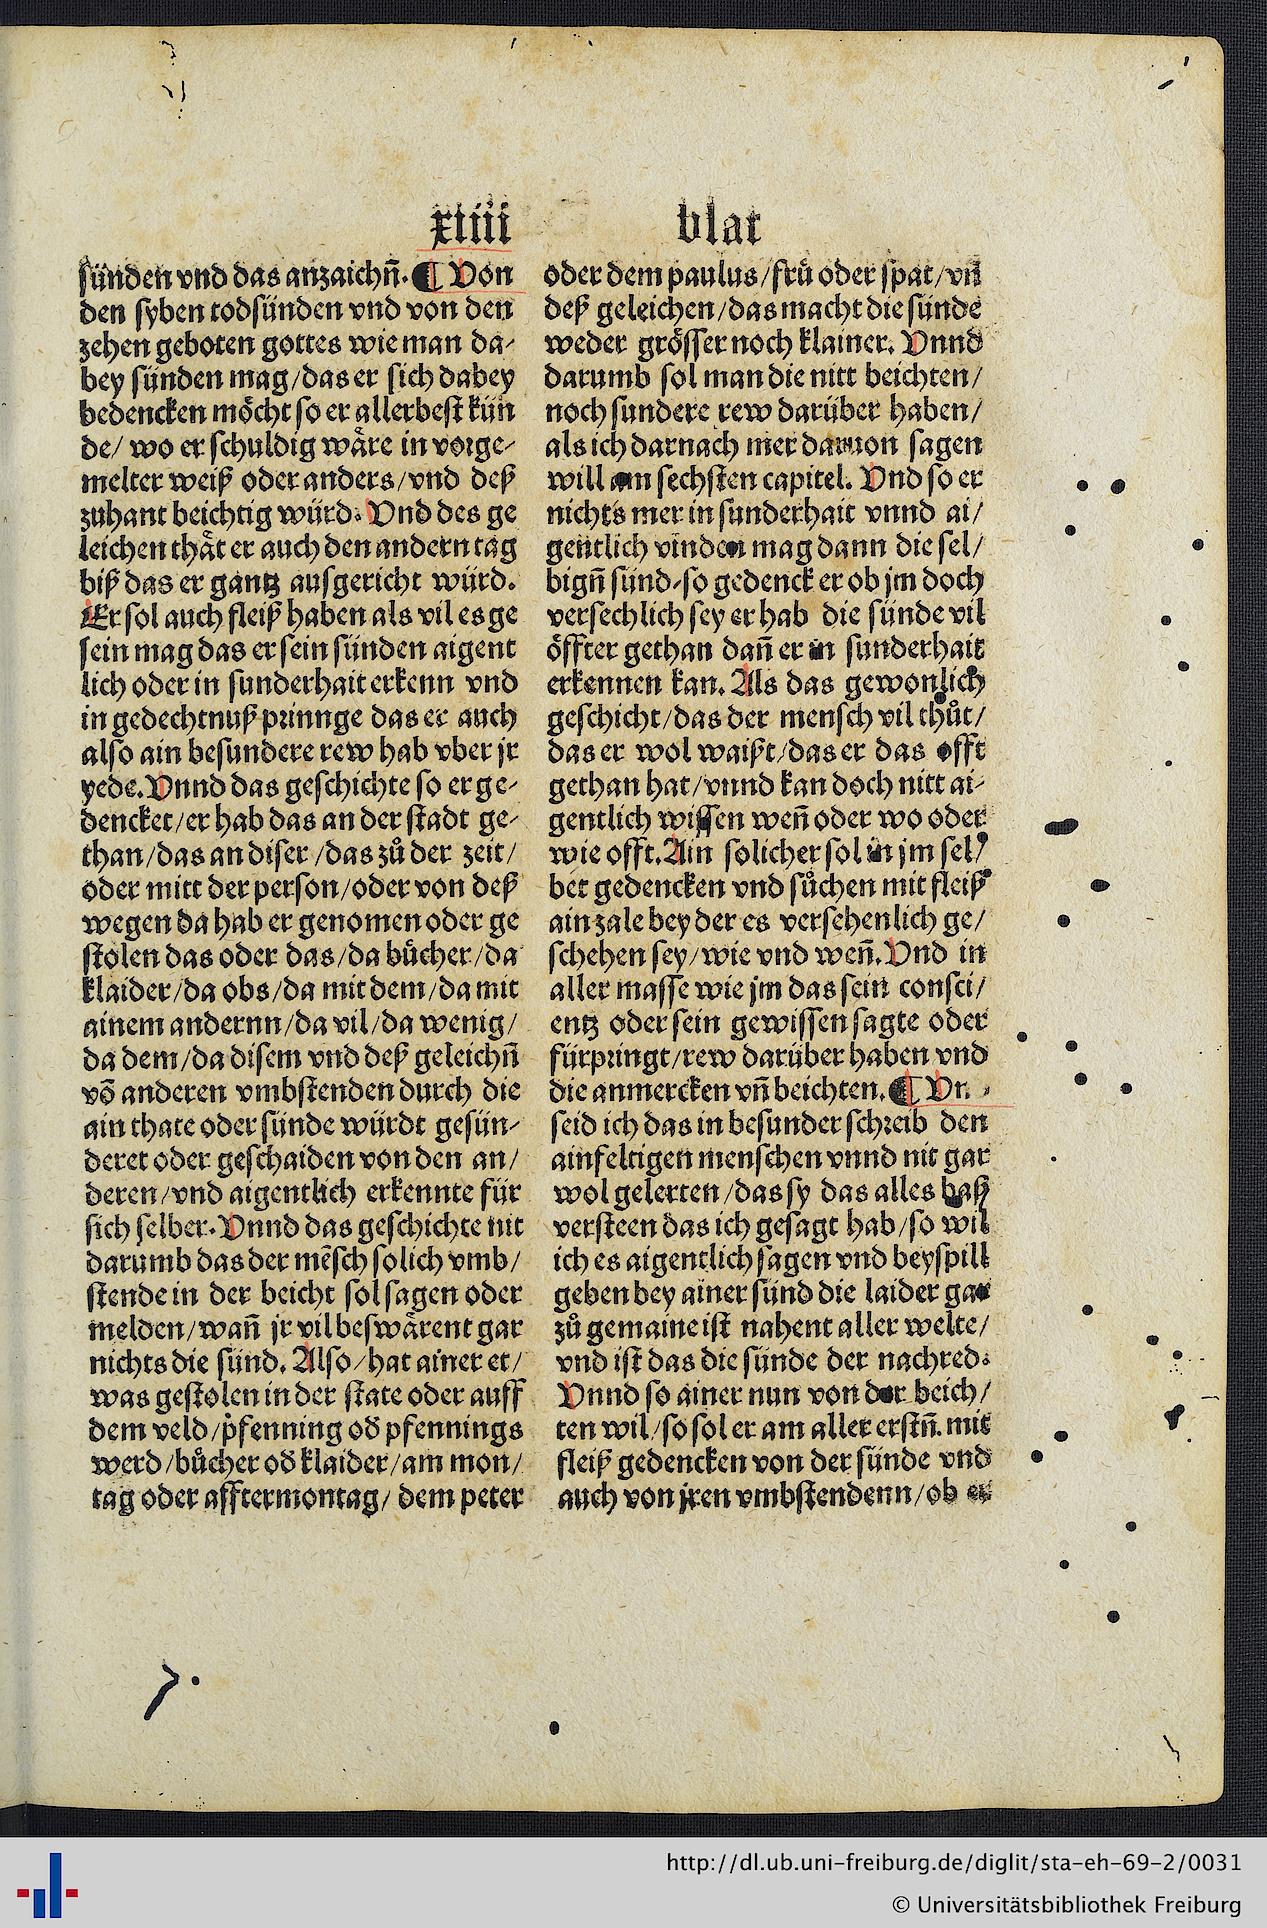 xiiii blat
sünden vnd das anzaichn̄. ¶ Von
den syben todsünden vnd von den
zehen geboten gottes wie man da-
bey sünden mag/das er sich dabey
bedencken möcht so er allerbest kün
de/ wo er schuldig wäre in vorge-
melter weiß oder anders/vnd deß
zuhant beichtig würd. Vnd des ge
leichen thät er auch den andern tag
biß das er gantz ausgericht würd.
Er sol auch fleiß haben als vil es ge
sein mag das er sein sünden aigent
lich oder in sunderhait erkenn vnd
in gedechtnuß prinnge das er auch
also ain besundere rew hab vber jr
yede. Vnnd das geschichte so er ge-
dencket/er hab das an der stadt ge-
than/das an diser/das zů der zeit/
oder mitt der person/oder von deß
wegen da hab er genomen oder ge
stolen das oder das/da bücher/da
klaider/da obs/da mit dem/da mit
ainem andernn/da vil/da wenig/
da dem/da disem vnd deß geleichn̄
vō anderen vmbstenden durch die
ain thate oder sünde würdt gesün-
deret oder geschaiden von den an/
deren/vnd aigentlich erkennte für
sich selber. Vnnd das geschichte nit
darumb das der mēsch solich vmb/
stende in der beicht sol sagen oder
melden/wan̄ jr vil beswärent gar
nichts die sünd. Also/hat ainer et/
was gestolen in der state oder auff
dem veld/pfenning oď pfennings
werd/bücher oď klaider/am mon/
tag oder afftermontag/ dem peter
oder dem paulus/frü oder spat/vn̄
deß geleichen/das macht die sünde
weder grösser noch klainer. Vnnd
darumb sol man die nitt beichten/
noch sundere rew darüber haben/
als ich darnach mer daruon sagen
will am sechsten capitel. Vnd so er
nichts mer in sunderhait vnnd ai/
gentlich vinden mag dann die sel/
bign̄ sünd/so gedenck er ob jm doch
versechlich sey er hab die sünde vil
öffter gethan dan̄ er in sunderhait
erkennen kan. Als das gewonlich
geschicht/das der mensch vil thůt/
das er wol waißt/das er das offt
gethan hat/vnnd kan doch nitt ai-
gentlich wissen wen̄ oder wo oder
wie offt. Ain solicher sol in jm sel/
ber gedencken vnd sůchen mit fleiß
ain zale bey der es versehenlich ge/
schehen sey/wie vnd wen̄. Vnd in
aller masse wie jm das sein consci/
entz oder sein gewissen sagte oder
fürpringt/rew darüber haben vnd
die anmercken vn̄ beichten. ¶
seid ich das in besunder schreib den
ainfeltigen menschen vnnd nit gar
wol gelerten/das sy das alles baß
versteen das ich gesagt hab/so wil
ich es aigentlich sagen vnd beyspill
geben bey ainer sünd die laider gar
zů gemaine ist nahent aller welte/
vnd ist das die sünde der nachred.
Vnnd so ainer nun von der beich/
ten wil/so sol er am aller erstn̄ mit
fleiß gedencken von der sünde vnd
auch von jren vmbstendenn/ob er
7.
http://dl.ub.uni-freiburg.de/diglit/sta-eh-69-2/0031
© Universitätsbibliothek Freiburg